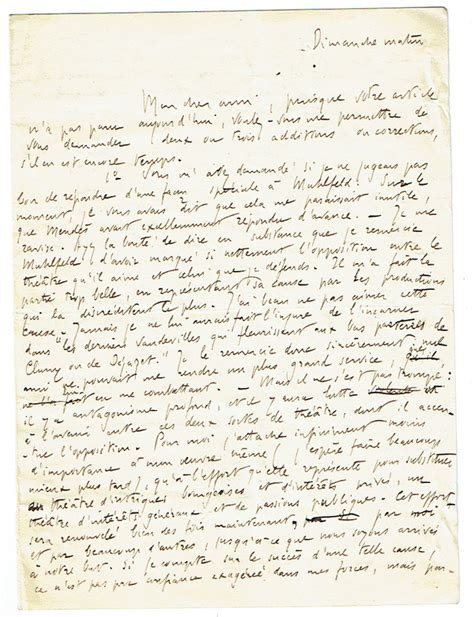 Dimanche matin
Mon cher ami, puisque votre article
n'a pas paru aujourd'hui, voulez-vous me permettre de
vous demander deux ou trois additions ou corrections,
s'il en est encore temps.
1° Vous m'avez demandé si je ne jugeais pas
bon de répondre d'une façon spéciale à Muhlfeld. Sur le
moment, je vous avais dit que cela me paraissait inutile,
que Mendès avait excellemment répondu d'avance. – Je me
ravise. Ayez la bonté de dire en substance que je remercie
Muhlfeld d'avoir marqué si nettement l'opposition entre le
théâtre qu'il aime et celui que je défends. Il m'a fait la
partie trop belle, en représentant sa cause par les productions
qui la discréditent le plus. J'ai beau ne pas aimer cette
cause. – Jamais je ne lui aurais fait l'injure de l'incarner
dans "les derniers vaudevilles qui fleurissent aux bas parterres de
Cluny ou de Déjazet." Je le remercie donc sincèrement; nul
ami ne pouvait me rendre un plus grand service,
en me combattant. – Mais il ne s'est pas trompé:
il y a antagonisme profond, et il y aura lutte
à l'avenir entre ces deux sortes de théâtre, dont il accen-
tue l'opposition. Pour moi, j'attache infiniment moins
d'importance à mon œuvre même (j'espère faire beaucoup
mieux plus tard), qu'à l'effort qu'elle représente pour substituer
au théâtre d'intrigues bourgeoises et d'intérêts privés, un
théâtre d'intérêts généraux et de passions publiques. Cet effort
sera renouvelé bien des fois maintenant, par moi
et par beaucoup d'autres, jusqu'à ce que nous soyons arrivés
à notre but. Si je compte sur le succès d'une telle cause,
ce n'est pas par confiance exagérée dans mes forces, mais par-